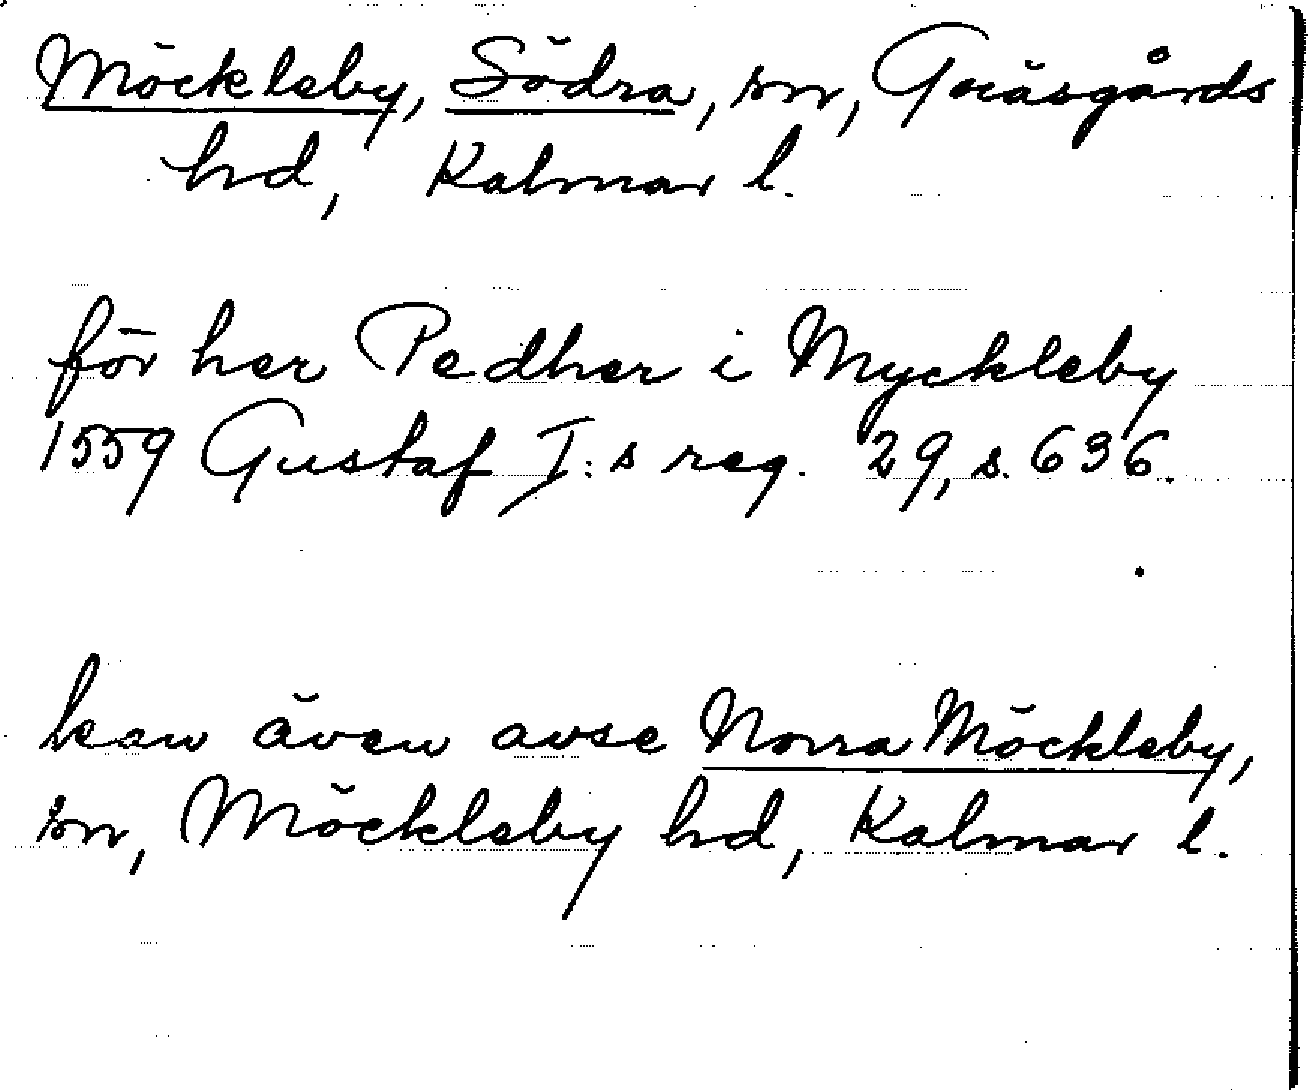 Möckleby, Södra, sn, Gräsgårds
hd, Kalmar l.
för her Pedher i Myckleby
1559 Gustaf I:s reg. 29, s. 636.
kan även avse Norra Möckleby,
sn, Möckleby hd, Kalmar l.